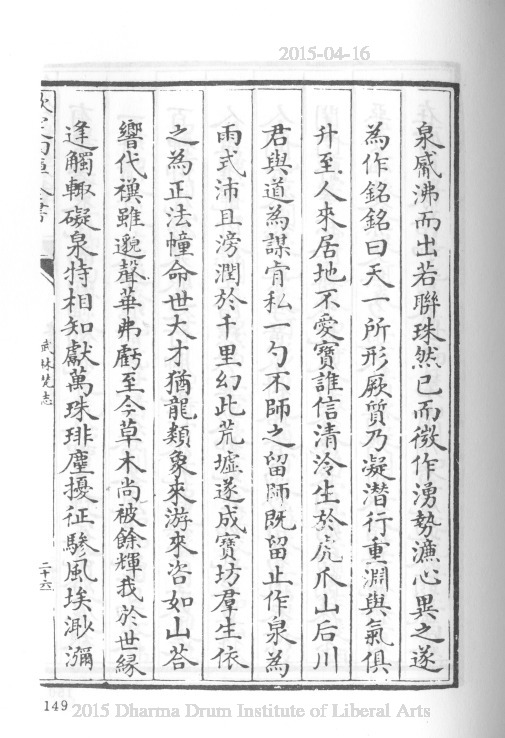 2015-04-16
泉觱沸而出若聯珠然已而微作湧勢濂心異之遂
為作銘銘曰天一所形厥質乃凝潜行重淵與氣俱
升至人來居地不愛寶誰信清泠生於虎爪山后川
君與道為謀肯私一勺不師之留師既留止作泉為
雨式沛且滂潤於千里幻此荒墟遂成寶坊羣生依
之為正法幢命世大才猶龍類象來游來咨如山荅
響代禩雖邈聲華弗虧至今草木尚被餘輝我於世縁
逢觸輙礙泉特相知獻萬珠琲塵擾征驂風埃渺瀰
欽定四庫全書
武林梵志
二十六
149
2015 Dharma Drum Institute of Liberal Arts